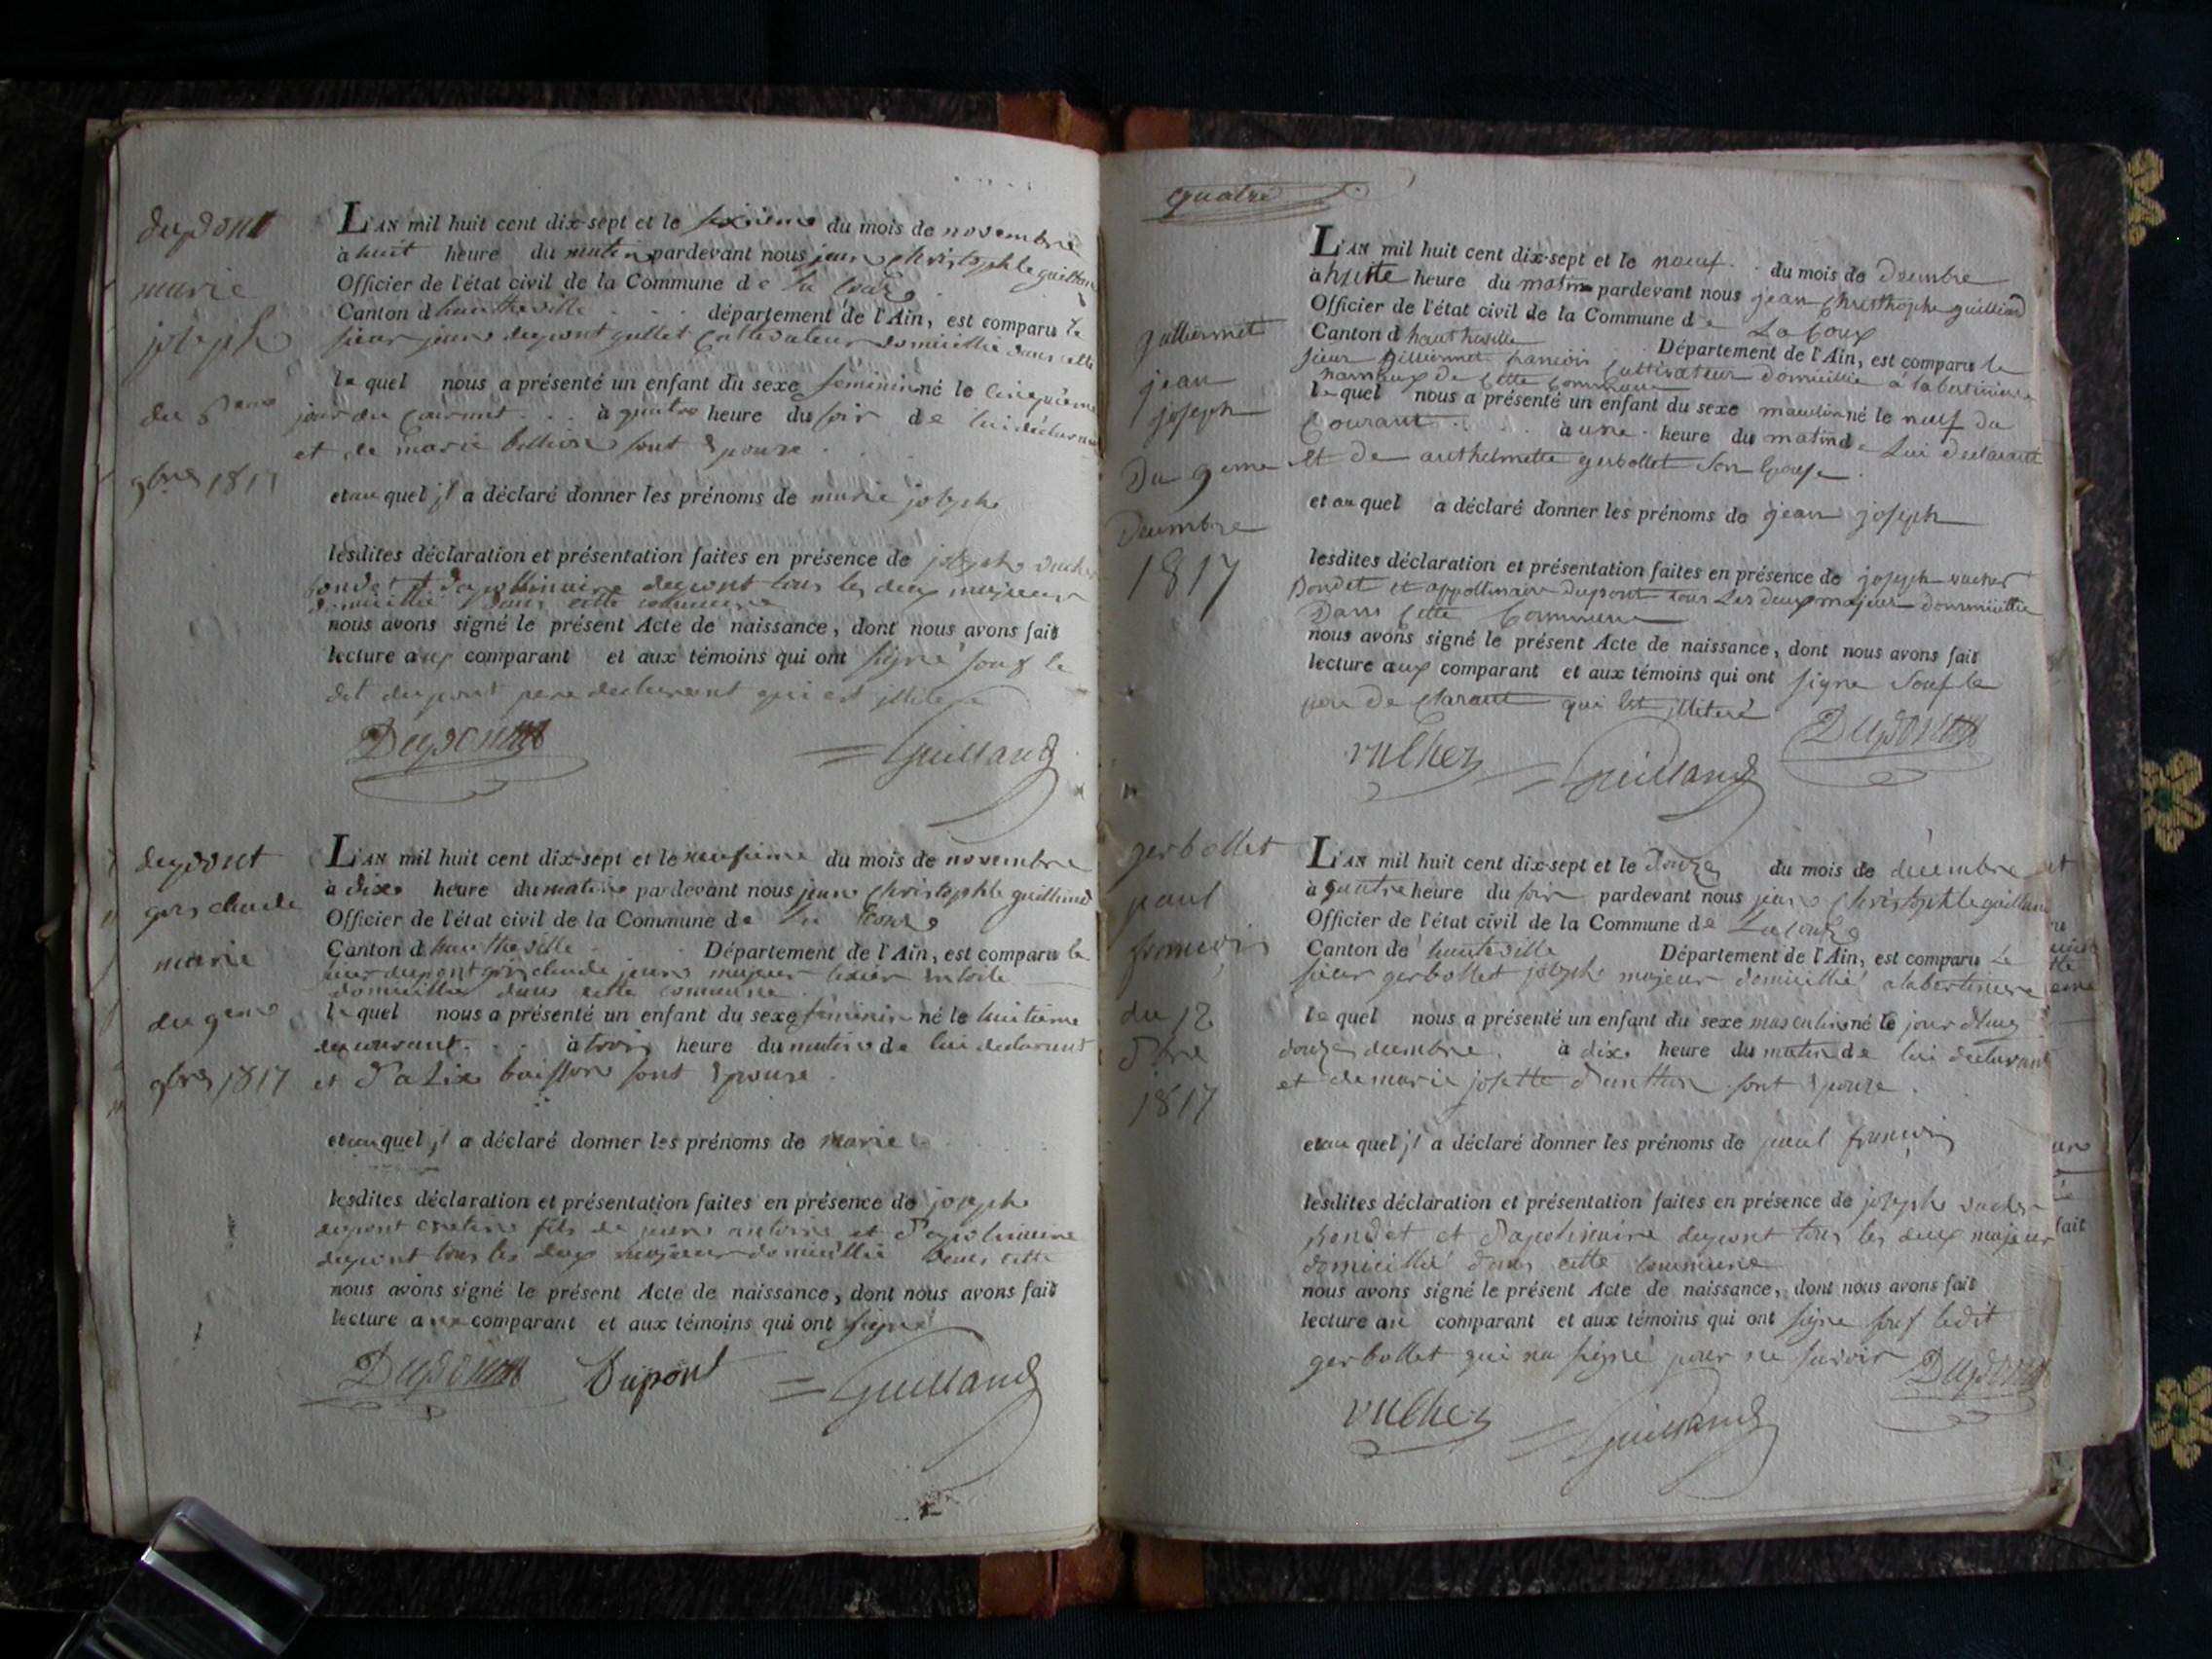 dupont
marie
joseph
du 5eme
9bre 1817
L'AN mil huit cent dix-sept et le sixieme du mois de novembre
à huit heure du matin pardevant nous jean christophle guilland
Officier de l'état civil de la Commune de la
Canton d hautheville département de l'Ain, est comparu le
sieur jean dupont gullet cultivateur domicillié dans cette
le quel nous a présenté un enfant du sexe feminin né le cinquieme
jour du courant à quatre heure du soir de lui déclarant
et de marie billion sont epouze
et au quel jl a déclaré donner les prénoms de marie joseph
lesdites déclaration et présentation faites en présence de joseph vucher
bondet et d'apollinaire dupont tous les deux majeur
domicillié dans cette commune
nous avons signé le présent Acte de naissance, dont nous avons fait
lecture aux comparant et aux témoins qui ont signé souf le
dit dupont pere declarant qui est jllitere
Dupont Guilland
dupont
gris claude
marie
du 9eme
9bre 1817
L'AN mil huit cent dix-sept et le neufieme du mois de novembre
à dix heure du matin pardevant nous jean christophle guilland
Officier de l'état civil de la Commune de la
Canton d hautheville Département de l'Ain, est comparu le
sieur dupont gris claude jean majeur tixier en toile
domicillié dans cette commune
le quel nous a présenté un enfant du sexe feminin né le huitieme
du courant à trois heure du matin de lui declarant
et d'alix buisson sont epouze
et au quel jl a déclaré donner les prénoms de marie
lesdites déclaration et présentation faites en présence de joseph
dupont cretin fils de jean antoine et d'apolinaire
dupont tous les deux majeur domicillié dans cette
nous avons signé le présent Acte de naissance, dont nous avons fait
lecture aux comparant et aux témoins qui ont signé
Dupont Dupont Guilland
quatre
guilliermet
jean
joseph
Du 9eme
Decembre
1817
L'AN mil huit cent dix-sept et le noeuf du mois de Decembre
à huite heure du matin pardevant nous jean christhophe guilliand
Officier de l'état civil de la Commune de La Coux
Canton d hautheville Département de l'Ain, est comparu le
sieur guilliermet francois cultivateur domicillié a labertiniere
hameaux de Cette Commune
le quel nous a présenté un enfant du sexe masculin né le neuf du
Courant à une heure du matin de Lui declarant
Et de anthelmette gerbollet son Epouse
et au quel a déclaré donner les prénoms de jean joseph
lesdites déclaration et présentation faites en présence de joseph vucher
Bondet et appollinaire Dupont tous Les deux majeur dommicillie
Dans Cette Commune
nous avons signé le présent Acte de naissance, dont nous avons fait
lecture aux comparant et aux témoins qui ont signe Souf le
pere De Clarant qui Est jlliteré
vulher Guilland Dupont
gerbollet
paul
francois
du 12
Xbre
1817
L'AN mil huit cent dix-sept et le douze du mois de décembre
à quatre heure du soir pardevant nous jean christophle guilland
Officier de l'état civil de la Commune de
Canton de hauteville Département de l'Ain, est comparu Le
sieur gerbollet joseph majeur domicillié a labertiniere
le quel nous a présenté un enfant du sexe masculin né le jour d'huy
douze decembre à dix heure du matin de lui declarant
et de marie josette sont epouze
et au quel jl a déclaré donner les prénoms de paul francois
lesdites déclaration et présentation faites en présence de joseph vucher
bondet et d'apolinaire dupont tous les deux majeur
domicillié dans cette commune
nous avons signé le présent Acte de naissance, dont nous avons fait
lecture au comparant et aux témoins qui ont signe souf ledit
gerbollet qui na signé pour ne savoir
vulher Guilland Dupont